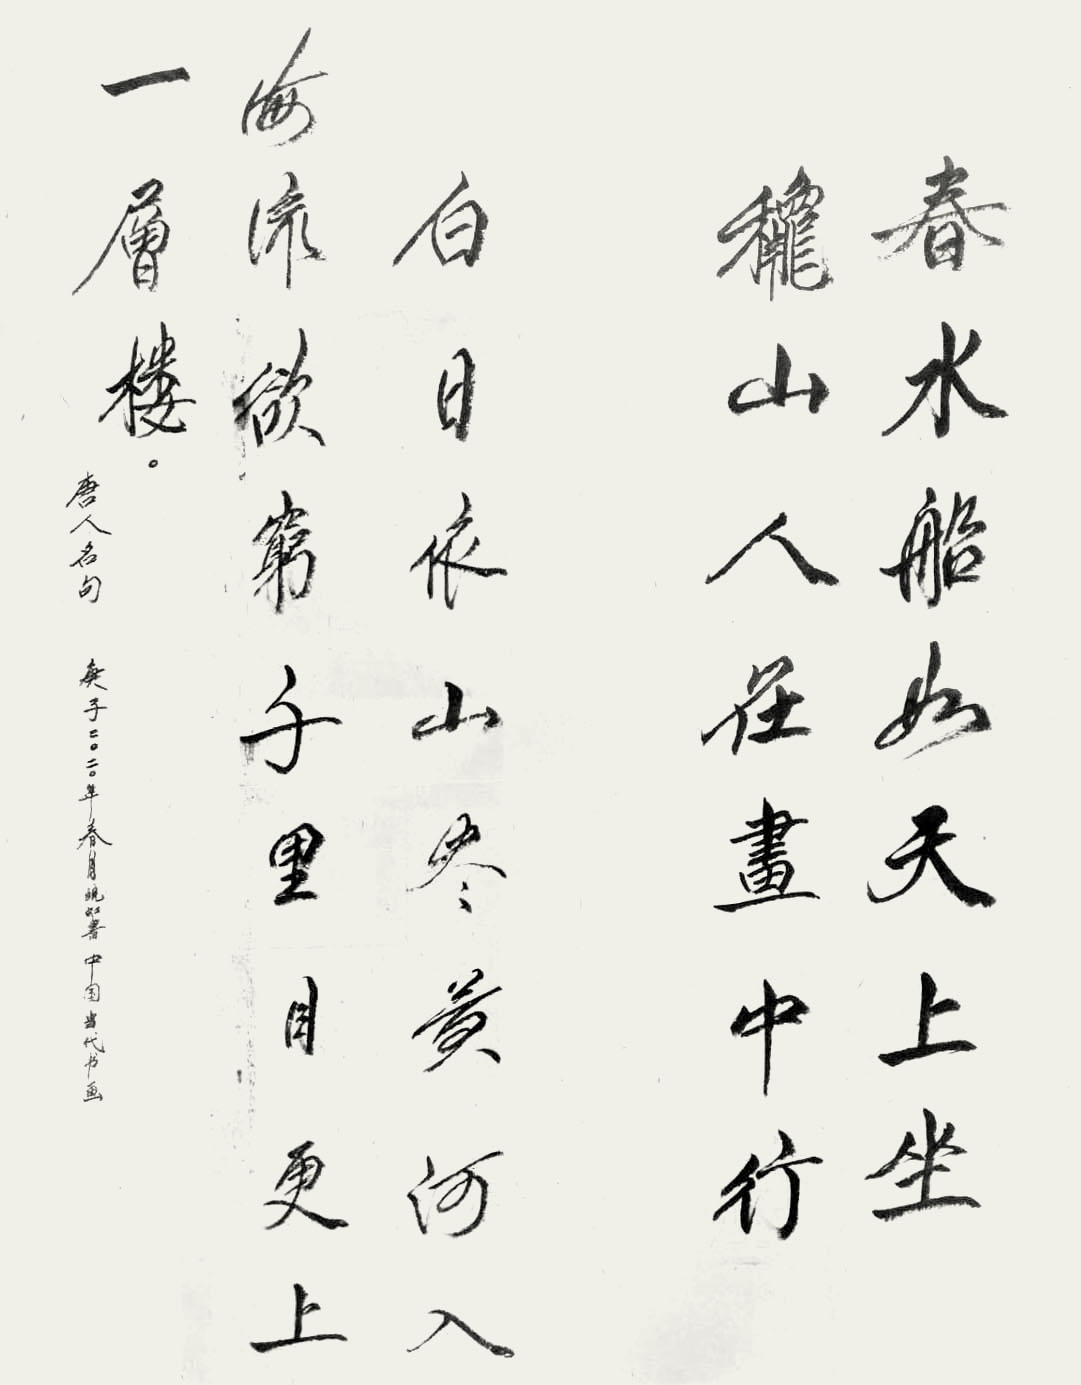 春水船如天上坐
龝山人在畫中行
白日依山尽黄河入
海流欲窮千里目更上
一層楼。
唐人名句
庚子二〇二〇年春月 中国当代书画